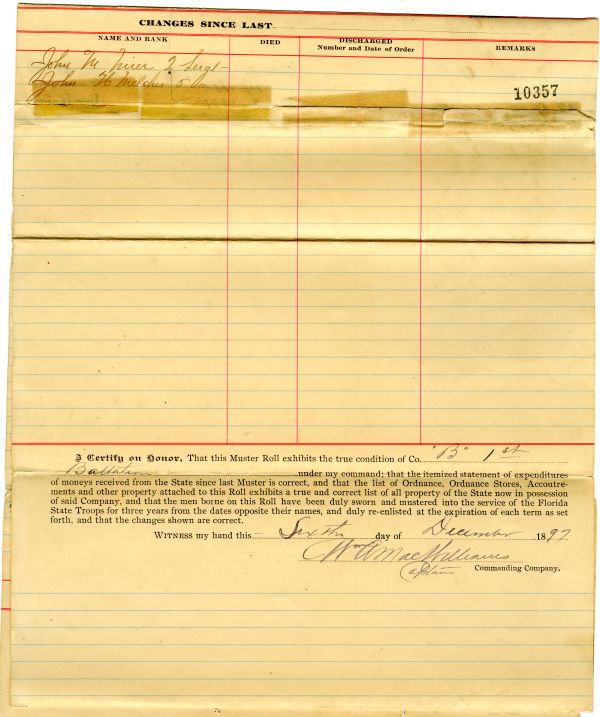 CHANGES SINCE LAST
NAME AND RANK DIED DISCHARGED Number and Date of Order REMARKS
John M 2 Sergt
John H 5 "
10357
I Certify on Honor, That this Muster Roll exhibits the true condition of Co. "B" 1st
Battalion under my command; that the itemized statement of expenditures
of moneys received from the State since last Muster is correct, and that the list of Ordnance, Ordnance Stores, Accoutre-
ments and other property attached to this Roll exhibits a true and correct list of all property of the State now in possession
of said Company, and that the men borne on this Roll have been duly sworn and mustered into the service of the Florida
State Troops for three years from the dates opposite their names, and duly re-enlisted at the expiration of each term as set
forth, and that the changes shown are correct.
WITNESS my hand this Sixth day of December 1897
Wm A MacWilliams
Captain Commanding Company.